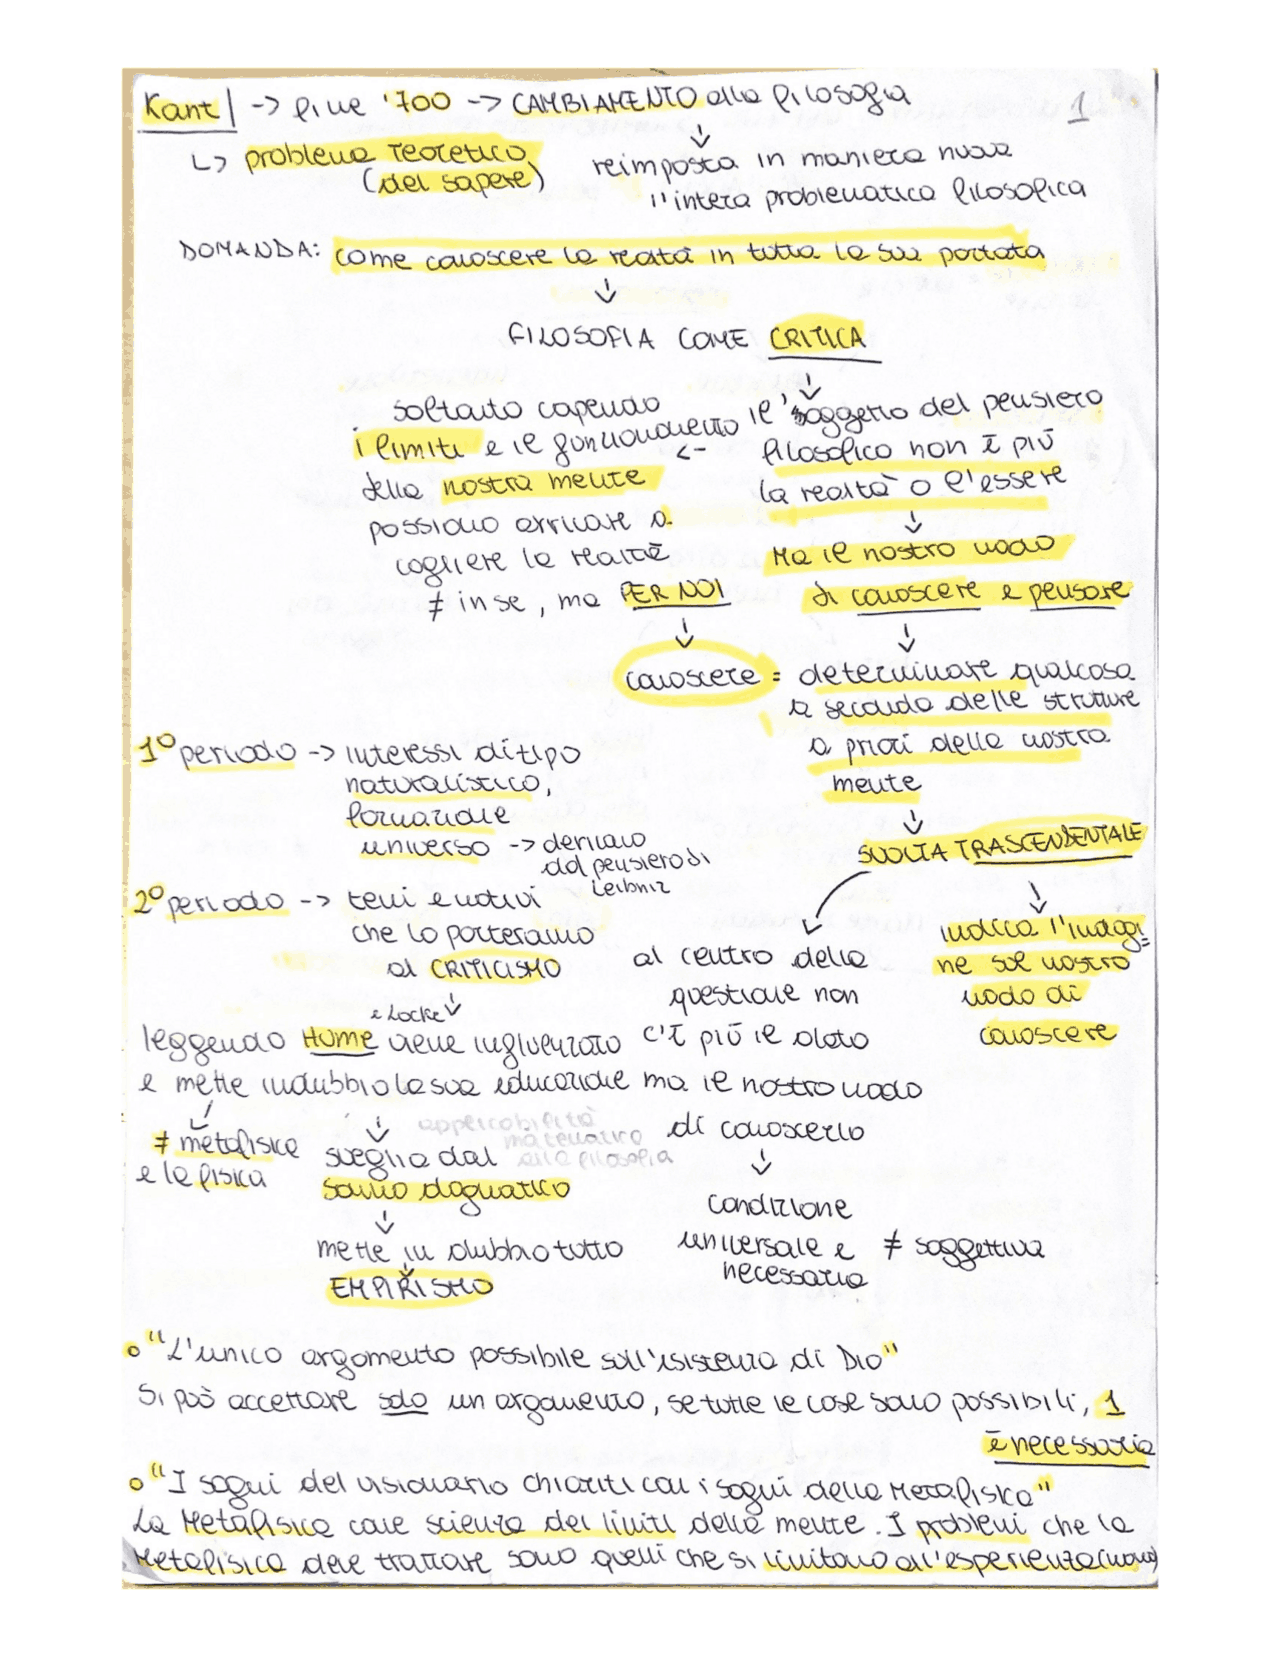 Kant | -> fine '700 -> CAMBIAMENTO alla filosofia
1
↳ problema teoretico
(del sapere)
↓
reimposta in maniera nuova
l'intera problematica filosofica
DOMANDA: come conoscere la realtà in tutta la sua portata
↓
FILOSOFIA COME CRITICA
↓
il soggetto del pensiero
filosofico non è più
la realtà o l'essere
↓
Ma il nostro modo
di conoscere e pensare
<-
soltanto capendo
i limiti e il funzionamento
della nostra mente
possiamo arrivare a
cogliere la realtà
≠ in se, ma PER NOI
↓ ↓
conoscere = determinare qualcosa
a seconda delle strutture
a priori della nostra
mente
↓
SVOLTA TRASCENDENTALE
1º periodo -> interessi di tipo
naturalistico,
formazione
universo -> derivano
dal pensiero di
Leibniz
2º periodo -> temi e motivi
che lo porteranno
al CRITICISMO
↓
e Locke
leggendo HUME viene influenzato
e mette in dubbio la sua educazione
↓
≠ metafisica
e la fisica
↓
sveglia dal
sonno dogmatico
applicabilità
matematica
alla filosofia
↓
mette in dubbio tutto
↓
EMPIRISMO
al centro della
questione non
c'è più il dato
ma il nostro modo
di conoscerlo
↓
condizione
universale e ≠ soggettiva
necessaria
↓
indica l'indagi=
ne sul nostro
modo di
conoscere
o "L'unico argomento possibile sull'esistenza di Dio"
Si può accettare solo un argomento, se tutte le cose sono possibili, 1
è necessaria
o "I sogni del visionario chiariti con i sogni della Metafisica"
La Metafisica come scienza dei limiti della mente. I problemi che la
Metafisica deve trattare sono quelli che si limitano all'esperienza (uomo)